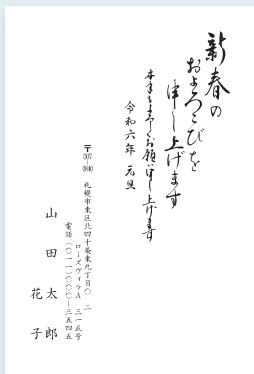 新春の
およろこびを
申し上げます
本年もよろしくお願い申し上げます
令和六年 元旦
〒007-0840 札幌市東区北四十条東九丁目〇 二
ローズヴィラA 三一五号
電話(〇一一)〇〇〇-三五四五
山田太郎
花子